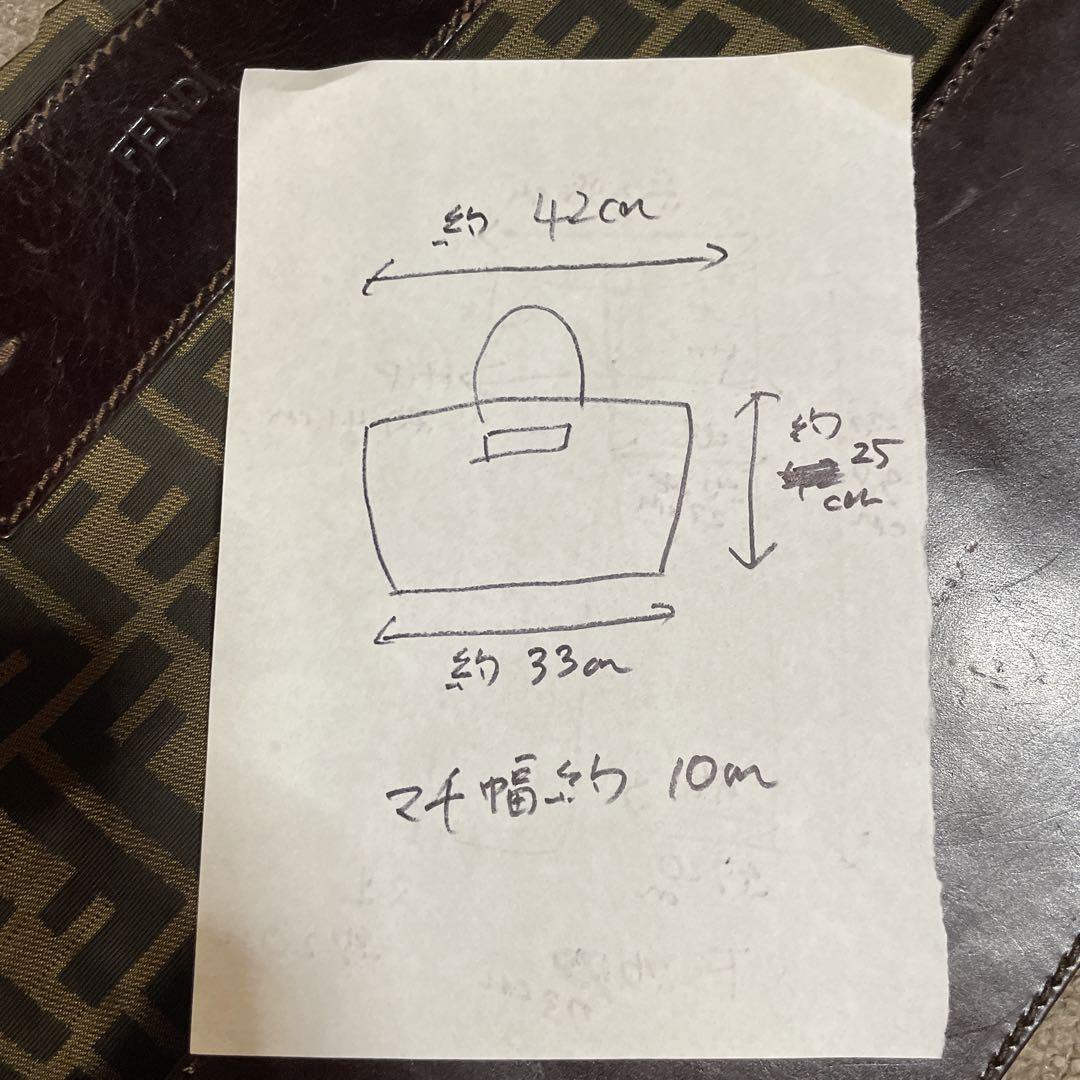 FENDI
約 42cm
約
25
cm
約 33cm
マチ幅約 10cm